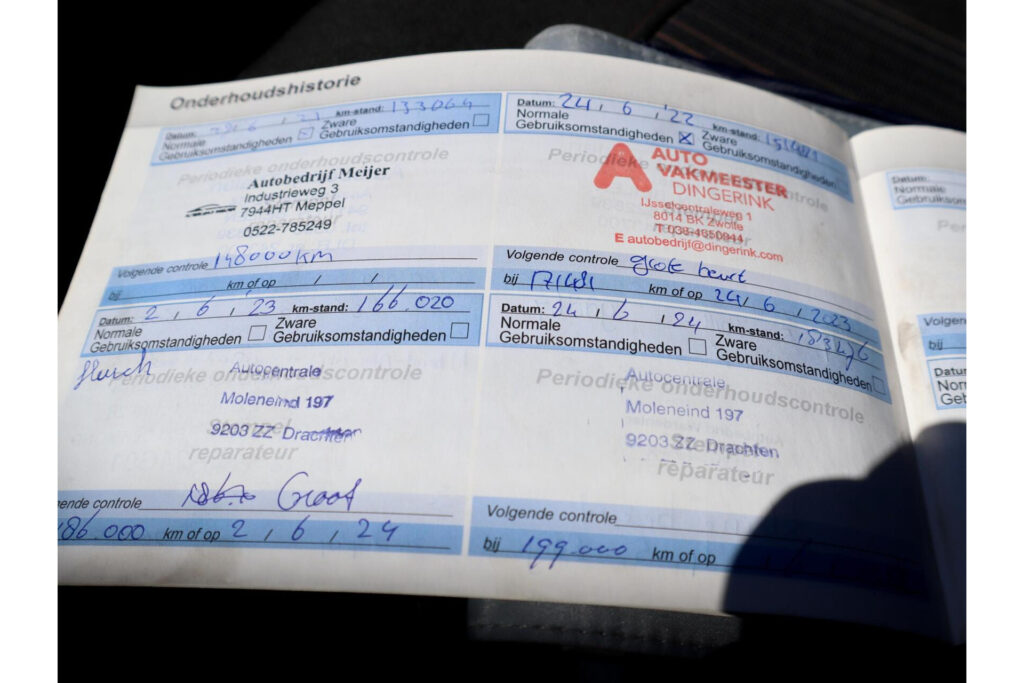 Onderhoudshistorie
Datum: 6 , 21 km-stand: 133064
Normale Gebruiksomstandigheden Zware Gebruiksomstandigheden
Periodieke onderhoudscontrole
Autobedrijf Meijer
Industrieweg 3
7944HT Meppel
0522-785249
reparateur
Volgende controle 148000 KM
bij km of op / /
Datum: 24 , 6 , 22 km-stand:
Normale Gebruiksomstandigheden Zware Gebruiksomstandigheden
Periodieke onderhoudscontrole
A AUTO
VAKMEESTER
DINGERINK
IJsselcentraleweg 1
8014 BK Zwolle
T 038-4650944
E autobedrijf@dingerink.com
Volgende controle grote beurt
bij km of op 24 , 6 , 2023
Datum: 2 , 6 , 23 km-stand: 166.020
Normale Gebruiksomstandigheden Zware Gebruiksomstandigheden
Periodieke onderhoudscontrole
Autocentrale
Moleneind 197
9203 ZZ Drachten
Stempel
reparateur
ende controle Groot
186.000 km of op 2 , 6 , 24
Datum: 24 , 6 , 24 km-stand:
Normale Gebruiksomstandigheden Zware Gebruiksomstandigheden
Periodieke onderhoudscontrole
Autocentrale
Moleneind 197
9203 ZZ Drachten
Stempel
reparateur
Volgende controle
bij 199.000 km of op
Datum:
Normale
Gebruiksom
Pe
Volgen
bij
Datu
Norm
Geb